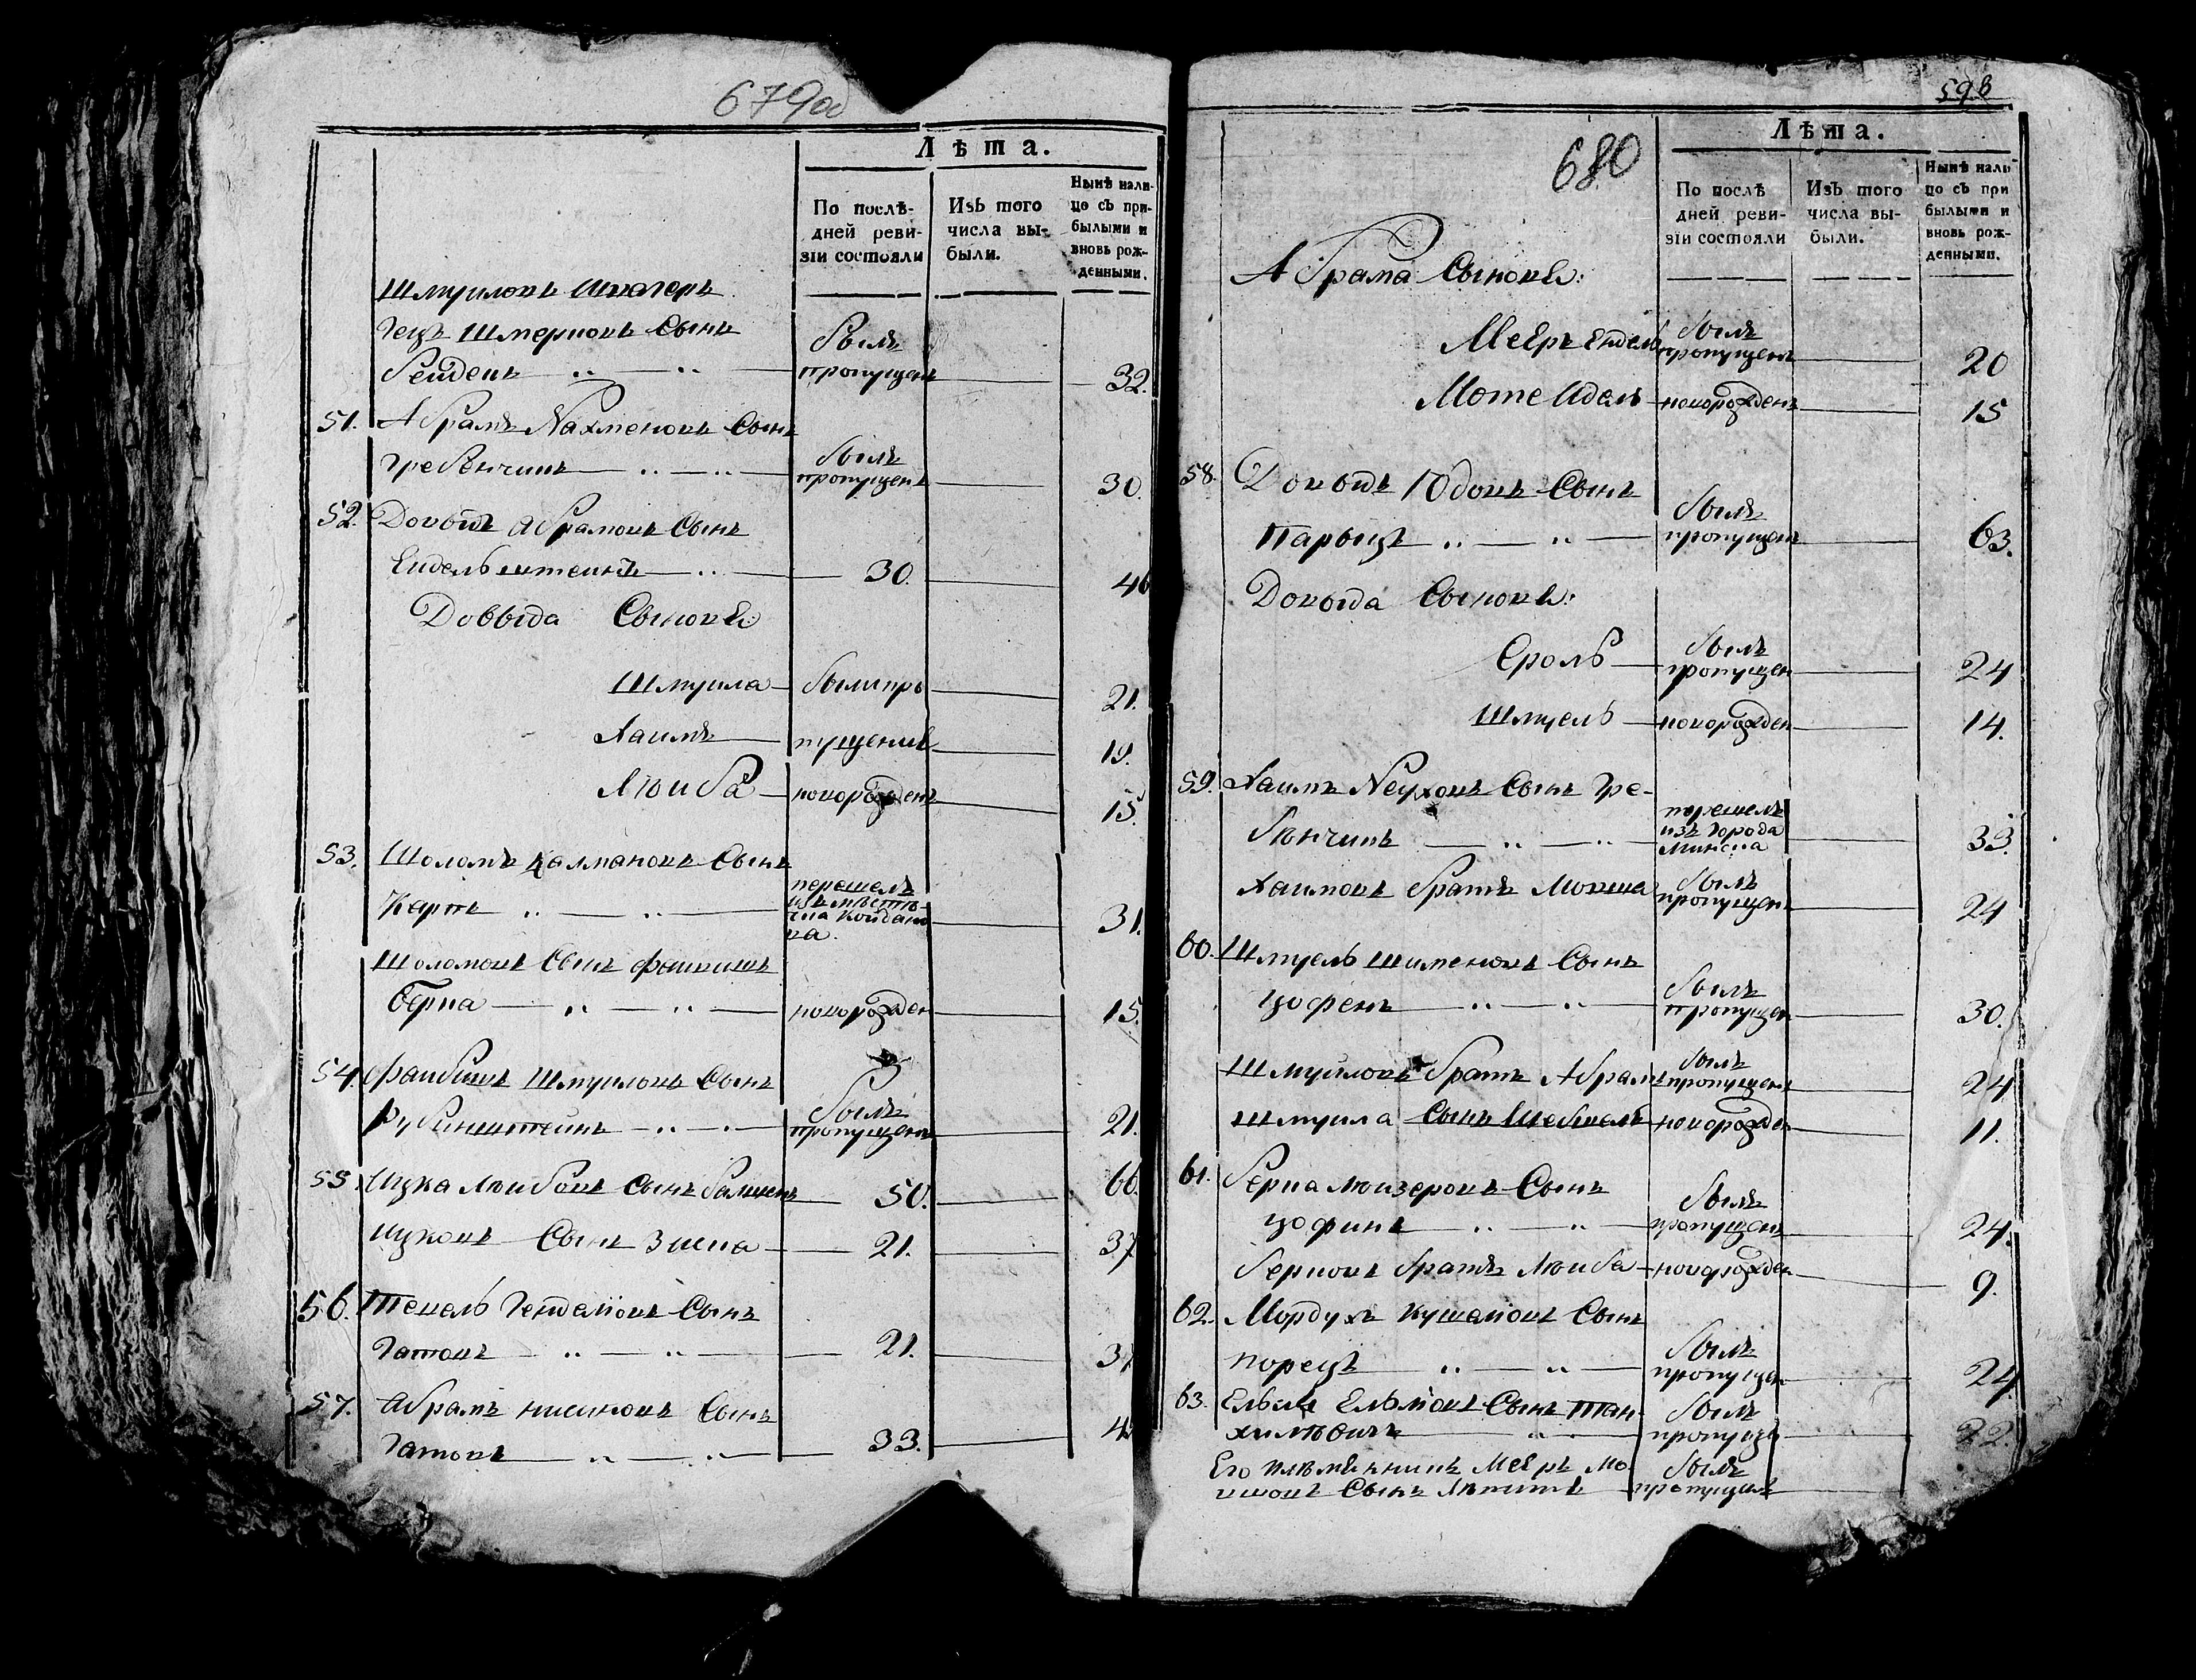 679об
Лѣта.
По послѣ-
дней реви-
зіи состояли
Изъ того
числа вы-
были.
Нынѣ нали-
цо съ при-
былыми и
вновь рож-
денными.
Шмуиловъ Швагеръ
Гецъ Шмерковъ Сынъ
былъ
пропущенъ 32.
51. Абрамъ Нахменовъ Сынъ
Гребенчикъ былъ пропущенъ 30.
52. Довыдъ Абрамовъ Сынъ
Ендельштеинъ 30. 46
Довыда Сыновья
Шмуила были про 21.
Хаимъ пущены 19.
Лейба новорожденъ 15.
53. Шоломъ Калмановъ Сынъ
Карпъ перешелъ
изъ мѣстѣ-
чка Койдано
ва. 31.
Шоломовъ Сынъ Фаивишъ
Берка новорожден 15.
54. Фаибишъ Шмуиловъ Сынъ
Рубинштейнъ былъ пропущенъ 21.
55. Ицка Лейбовъ Сынъ 50. 66.
Ицковъ Сынъ Зиска 21. 37
56. Тевель Генделіовъ Сынъ
Гатовъ 21. 37
57. Абрамъ Нисиновъ Сынъ
Гатовъ 33. 4
598
680
Лѣта.
По послѣ
дней реви-
зіи состояли
Изъ того
числа вы-
были.
Нынѣ нали
цо съ при
былыми и
вновь рож-
денными.
Абрама Сыновья:
Мееръ Ендель былъ пропущенъ 20
Моте Идель новорожденъ 15
58. Довыдъ Юдовъ Сынъ
Парыцъ былъ пропущенъ 63.
Довыда Сыновья:
Сроль былъ пропущен 24
Шмуель новорожден 14.
59. Хаимъ Сынъ Гре-
бѣнчикъ перешелъ
изъ города
Минска 33.
Хаимовъ братъ Мовша былъ пропущен 24
60. Шмуель Шименовъ Сынъ
Цофенъ былъ пропущен 30.
Шмуйловъ братъ Абрамъ былъ пропущенъ 24
Шмуила Сынъ новорожден 11.
61. Берка Лейзеровъ Сынъ
Цофинъ былъ пропущенъ 24.
Берковъ братъ Лейба новорожден 9.
62. Мордухъ Кушеліовъ Сынъ
Порецъ былъ пропущен 24
63. Сынъ Тан-
хилѣвичъ былъ пропущъ 22.
Его племянникъ Мееръ Мо
вшовъ Сынъ былъ пропущенъ